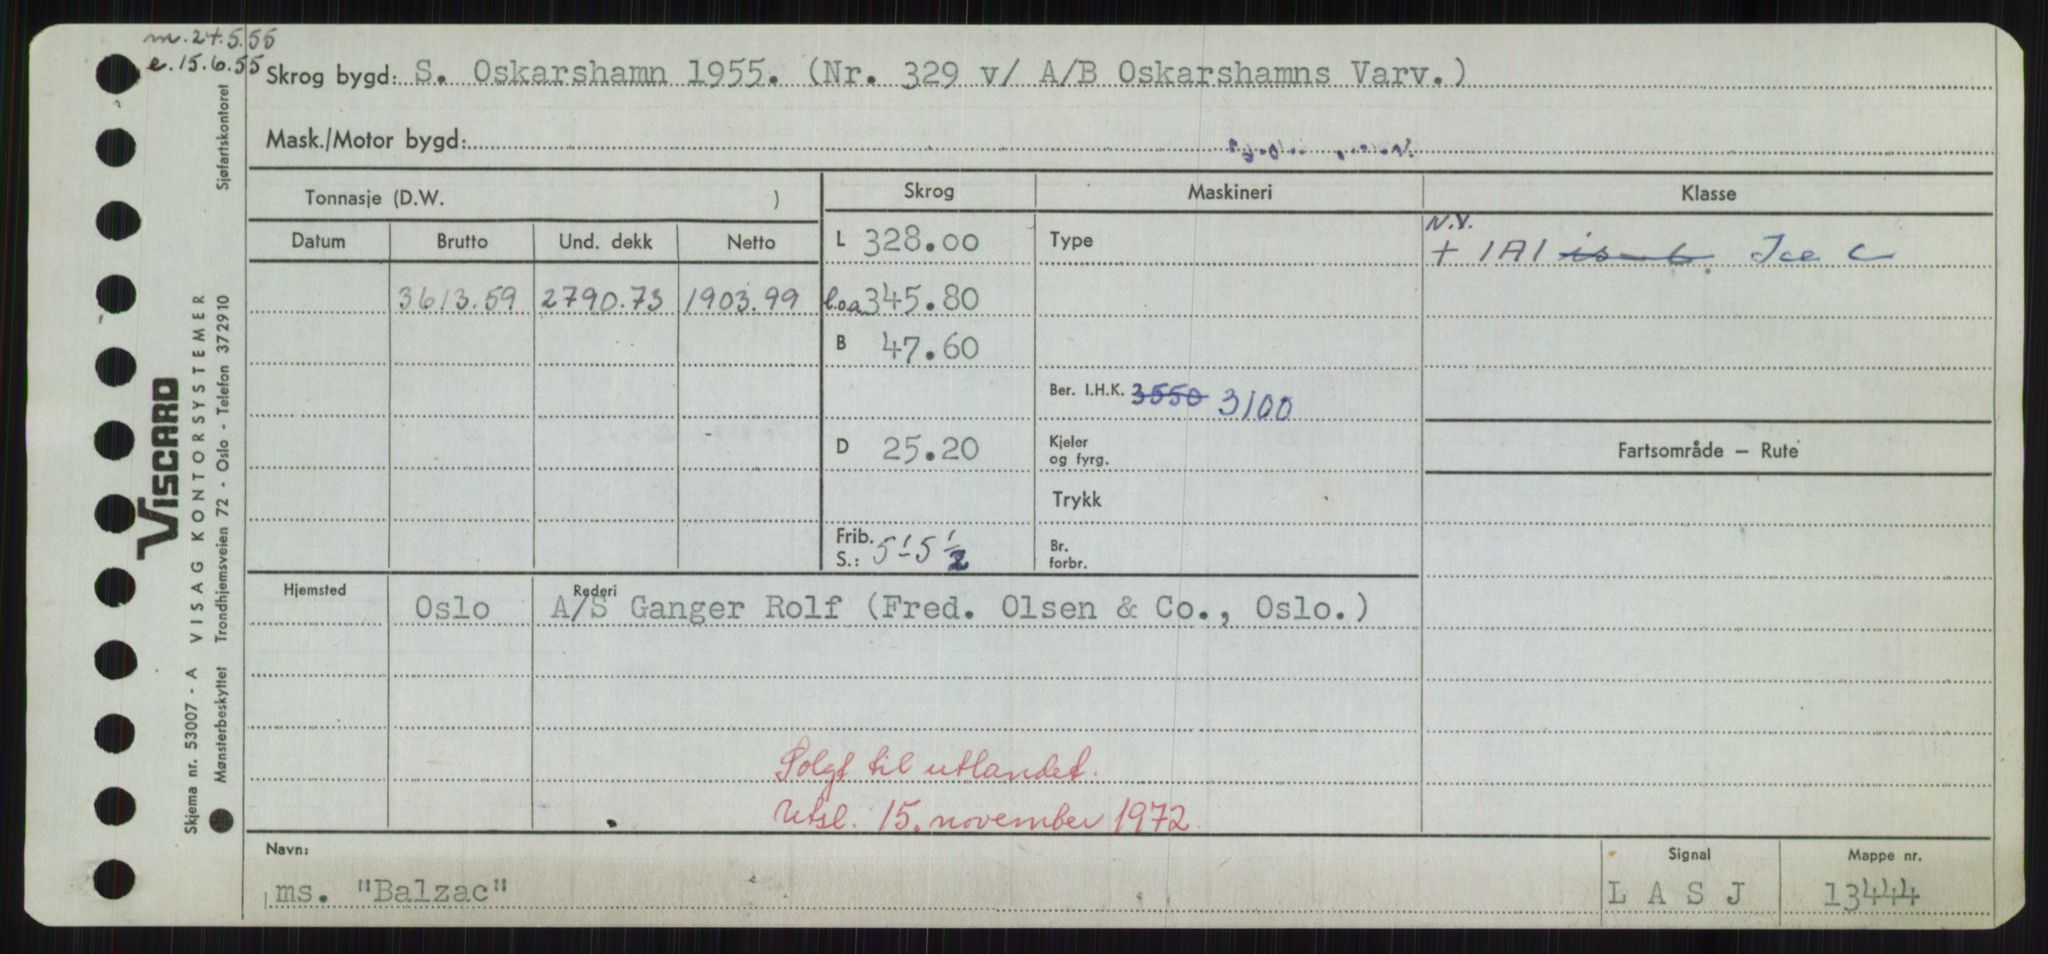 m. 24.5.55
e. 15.6.55
Skrog bygd: S. Oskarshamn 1955. (Nr. 329 v/ A/B Oskarshamns Varv.)
Mask./Motor bygd:
Tonnasje (D.W. )
Skrog
Maskineri
Klasse
Datum
Brutto
Und. dekk
Netto
L 328.00
Type
N.V.
+ 1A1 is-c Ice C
3613.59 2790.73 1903.99
l.o.a. 345.80
B 47.60
Ber. I.H.K. 3550 3100
D 25.20
Kjeler
og fyrg.
Fartsområde — Rute
Trykk
Frib.
S.: 5'-5 1/2
Br.
forbr.
Hjemsted
Rederi
Oslo
A/S Ganger Rolf (Fred. Olsen & Co., Oslo.)
Solgt til utlandet.
Utsl. 15. november 1972
Navn:
ms. "Balzac"
Signal
L A S J
Mappe nr.
13444
VISCARD
Skjema nr. 53007 - A VISAG KONTORSYSTEMER
Mønsterbeskyttet Trondhjemsveien 72 - Oslo - Telefon 372910 Sjøfartskontoret